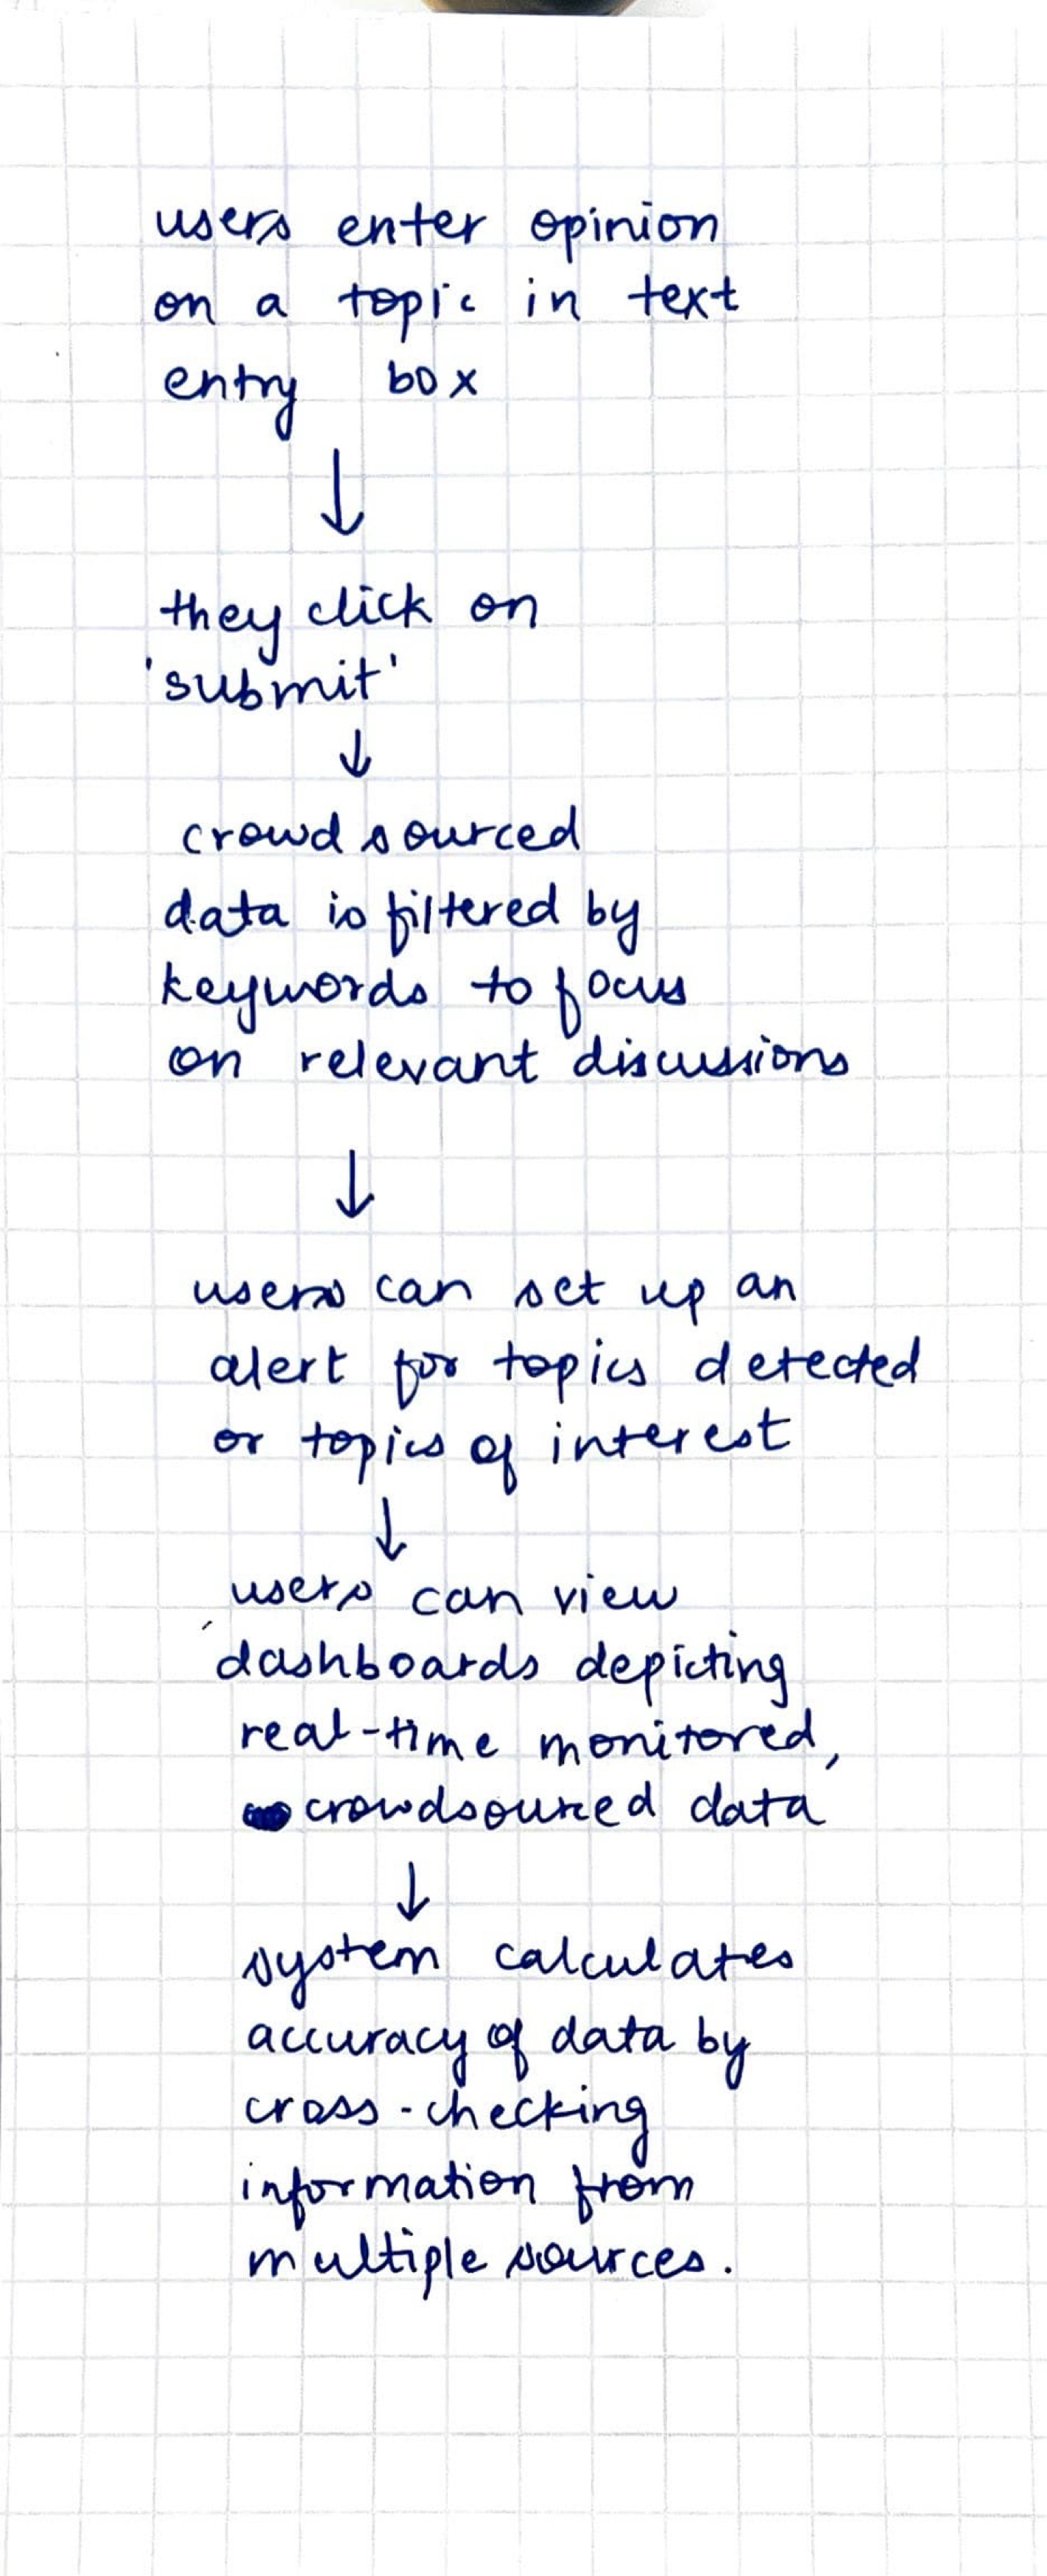 users enter opinion
on a topic in text
entry box
↓
they click on
'submit'
↓
crowdsourced
data is filtered by
keywords to focus
on relevant discussions
↓
users can set up an
alert for topics detected
or topics of interest
↓
users can view
dashboards depicting
real-time monitored,
crowdsourced data
↓
system calculates
accuracy of data by
cross-checking
information from
multiple sources.